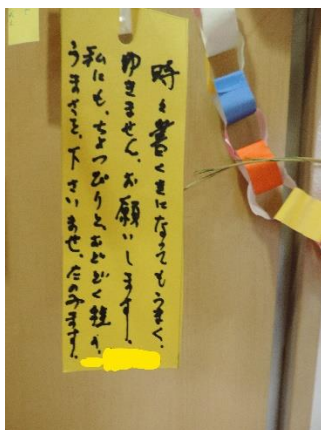 時々書くきになってもうまく、
ゆきません、お願いします。
私にも、ちょっぴりと、おどどく程の、
うまさを、下さいませ、たのみます。